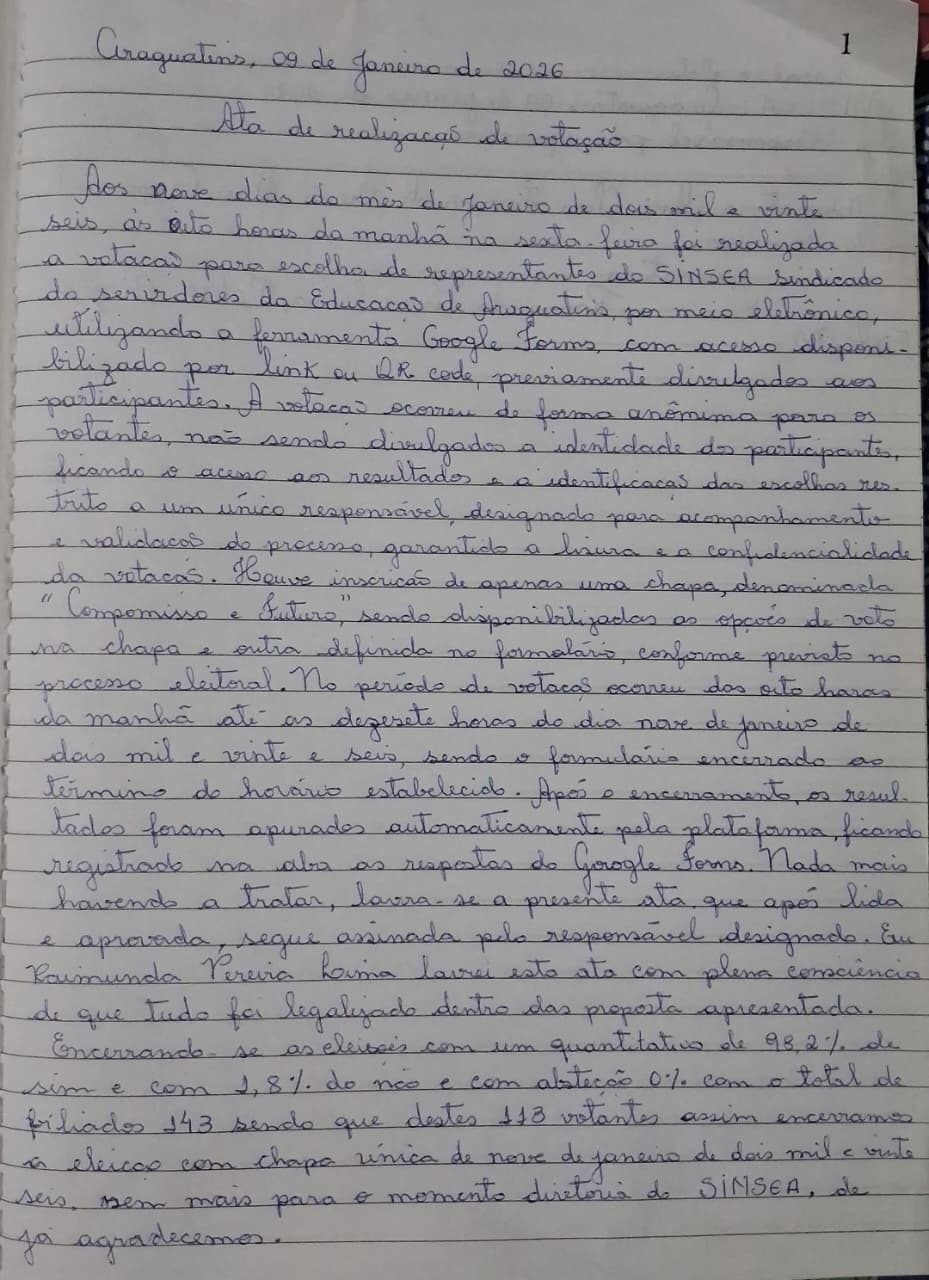 1
Araguatins, 09 de Janeiro de 2026
Ata de realizaçaõ de votação
Aos nove dias do mês de Janeiro de dois mil e vinte
seis, ás oito horas da manhã na sexta-feira foi realizada
a votacaõ para escolha de representantes do SINSEA Sindicado
do servidores da Educacaõ de Araguatins, por meio eletrônico,
utilizando a ferramenta Google Forms, com acesso disponi-
bilizado por link ou QR code, previamente divulgados aos
participantes. A votacaõ ocorreu de forma anônima para os
votantes, naõ sendo divulgados a identidade do participante,
ficando o acesso aos resultados e a identificacaõ das escolhas res-
trito a um único responsável, designado para acompanhamento
e validacaõ do processo, garantido a lisura e a confidencialidade
da votacaõ. Houve inscricaõ de apenas uma chapa, denominada
"Compomisso e Futuro", sendo disponibilizadas as opcoẽs de voto
na chapa e outra definida no formalário, conforme previsto no
processo eleitoral. No período de votacaõ ocorreu das oito horas
da manhã até as dezesete horas do dia nove de janeiro de
dois mil e vinte e seis, sendo o formulário encerrado ao
término do horário estabelecido. Após o encerramento, os resul-
tados foram apurados automaticamente pela plataforma, ficando
registrado na aba as respostas do Goroogle Forms. Nada mais
havendo a tratar, lavra-se a presente ata, que após lida
e aprovada, segue assinada pelo responsável designado. Eu
Raimunda Pereira Lima lavrei esta ata com plena consciência
de que tudo foi legalizado dentro das proposta apresentada.
Encerrando-se as eleicoẽs com um quantitativo de 98,2% de
sim e com 1,8% do não e com abstecão 0% com o total de
filiados 143 sendo que destes 113 votantes assim encerramos
a eleicão com chapa única de nove de janeiro de dois mil e vinte
seis, sem mais para o momento diretoria do SINSEA, de
já agradecemos.